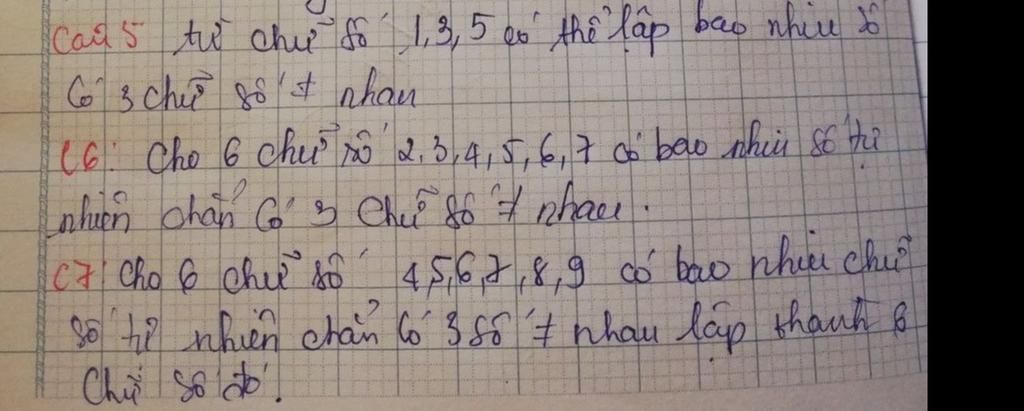 Câu 5 từ chữ số 1, 3, 5 có thể lập bao nhiu số
Có 3 chữ số ≠ nhau
C6: Cho 6 chữ số 2, 3, 4, 5, 6, 7 có bao nhiu số tự
nhiên chẵn Có 3 chữ số ≠ nhau.
C7: Cho 6 chữ số 4, 5, 6, 7, 8, 9 có bao nhiu chữ
số tự nhiên chẵn Có 3 số ≠ nhau lập thành 6
Chữ số đó.